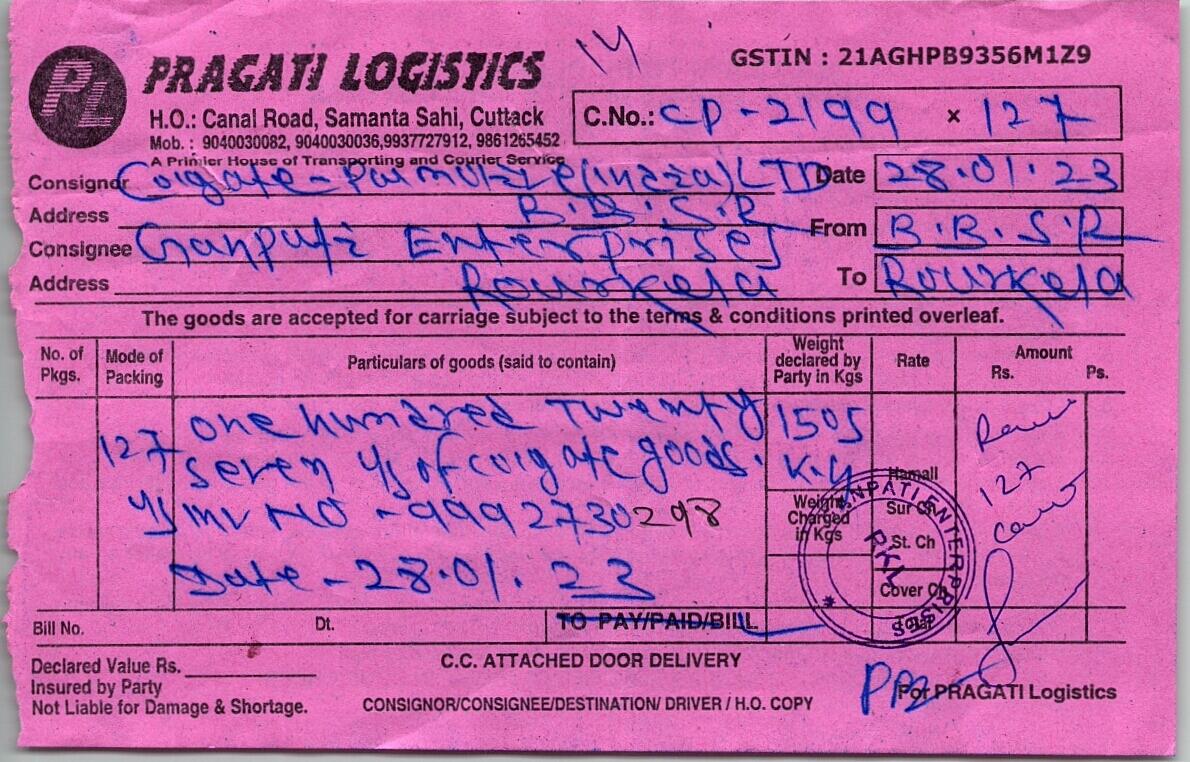 14
GSTIN : 21AGHPB9356M1Z9
PL
PRAGATI LOGISTICS
H.O.: Canal Road, Samanta Sahi, Cuttack
Mob. : 9040030082, 9040030036,9937727912, 9861265452
A Primier House of Transporting and Courier Service
C.No.: CP-2199 × 127
Consignor Colgate-Palmolive (India) LTD
Date 28.01.23
Address B.B.S.R
From B.B.S.R
Consignee Ganpati Enterprises
Address Rourkela
To Rourkela
The goods are accepted for carriage subject to the terms & conditions printed overleaf.
No. of Pkgs. Mode of Packing Particulars of goods (said to contain) Weight declared by Party in Kgs Rate Amount Rs. Ps.
127 one hundred Twenty 1505
seven of colgate goods. K.G
INV NO - 9992730298
Date - 28.01.23
Weight Charged in Kgs
Hamali
Sur Ch.
St. Ch
Cover Ch
127
GANPATI ENTERPRISES
RKL
Bill No. Dt. TO PAY/PAID/BILL
Declared Value Rs.
C.C. ATTACHED DOOR DELIVERY
Insured by Party
Not Liable for Damage & Shortage.
CONSIGNOR/CONSIGNEE/DESTINATION/ DRIVER / H.O. COPY
For PRAGATI Logistics